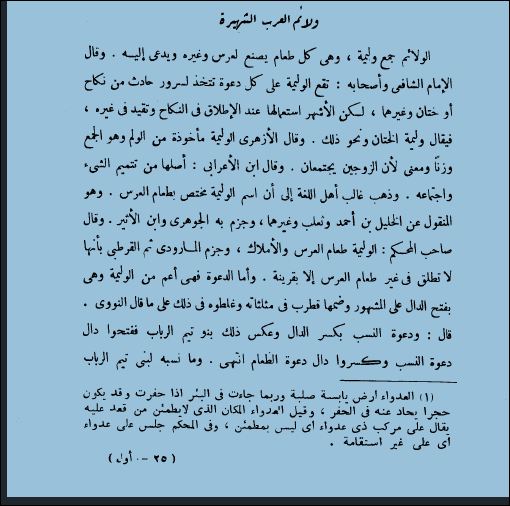 ولائم العرب الشهيرة
الولائم جمع وليمة ، وهى كل طعام يصنع لعرس وغيره ويدعى إليه . وقال
الإمام الشافعى وأصحابه : تقع الوليمة على كل دعوة تتخذ لسرور حادث من نكاح
أو ختان وغيرهما ، لكن الأشهر استعمالها عند الإطلاق فى النكاح وتقيد فى غيره ،
فيقال وليمة الختان ونحو ذلك . وقال الأزهرى الوليمة مأخوذة من الولم وهو الجمع
وزنًا ومعنى لأن الزوجين يجتمعان . وقال ابن الأعرابى : أصلها من تتميم الشىء
واجتماعه . وذهب غالب أهل اللغة إلى أن اسم الوليمة مختص بطعام العرس . وهو
المنقول عن الخليل بن أحمد وثعلب وغيرهما، وجزم به الجوهرى وابن الأثير . وقال
صاحب المحكم : الوليمة طعام العرس والأملاك ، وجزم الماوردى ثم القرطبى بأنها
لا تطلق فى غير طعام العرس إلا بقرينة . وأما الدعوة فهى أعم من الوليمة وهى
بفتح الدال على المشهور وضمها قطرب فى مثلثاته وغلطوه فى ذلك على ما قال النووى .
قال : ودعوة النسب بكسر الدال وعكس ذلك بنو تيم الرباب ففتحوا دال
دعوة النسب وكسروا دال دعوة الطعام انتهى . وما نسبه لبنى تيم الرباب
(١) العدواء ارض يابسة صلبة وربما جاءت فى البئر اذا حفرت وقد يكون
حجرا يحاد عنه فى الحفر ، وقيل العدواء المكان الذى لايطمئن من قعد عليه
يقال على مركب ذى عدواء اى ليس بمطمئن ، وفى المحكم جلس على عدواء
أى على غير استقامة .
( ٢٥ — أول )